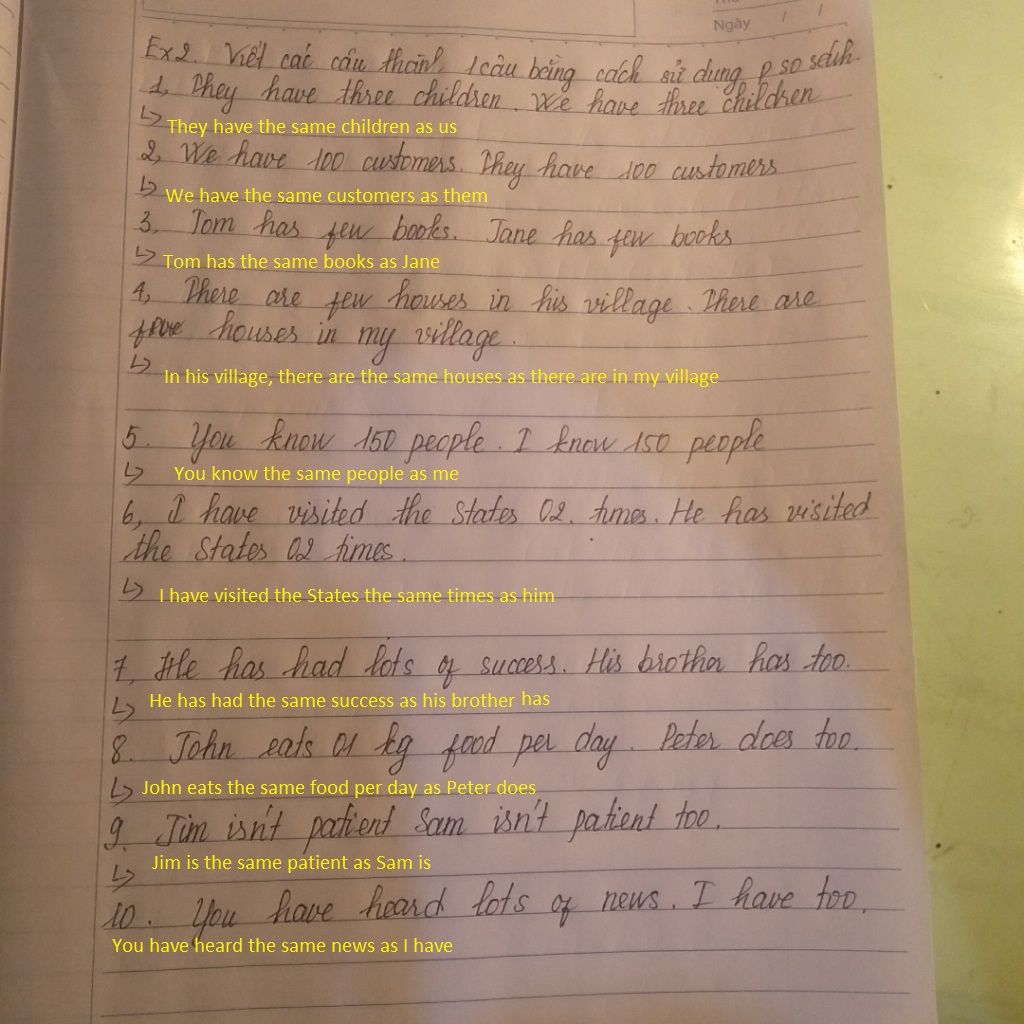 Ngày / /
Ex2. Viết các câu thành 1 câu bằng cách sử dụng p so sánh.
1, They have three children. We have three children
They have the same children as us
2, We have 100 customers. They have 100 customers
We have the same customers as them
3. Tom has few books. Jane has few books
Tom has the same books as Jane
4, There are few houses in his village. There are
houses in my village.
In his village, there are the same houses as there are in my village
5. You know 150 people. I know 150 people
You know the same people as me
6, I have visited the States 02. times. He has visited
the States 02 times.
I have visited the States the same times as him
7, He has had lots of success. His brother has too.
He has had the same success as his brother has
8. John eats 01 kg food per day. Peter does too.
John eats the same food per day as Peter does
9. Jim isn't patient Sam isn't patient too.
Jim is the same patient as Sam is
10. You have heard lots of news. I have too.
You have heard the same news as I have